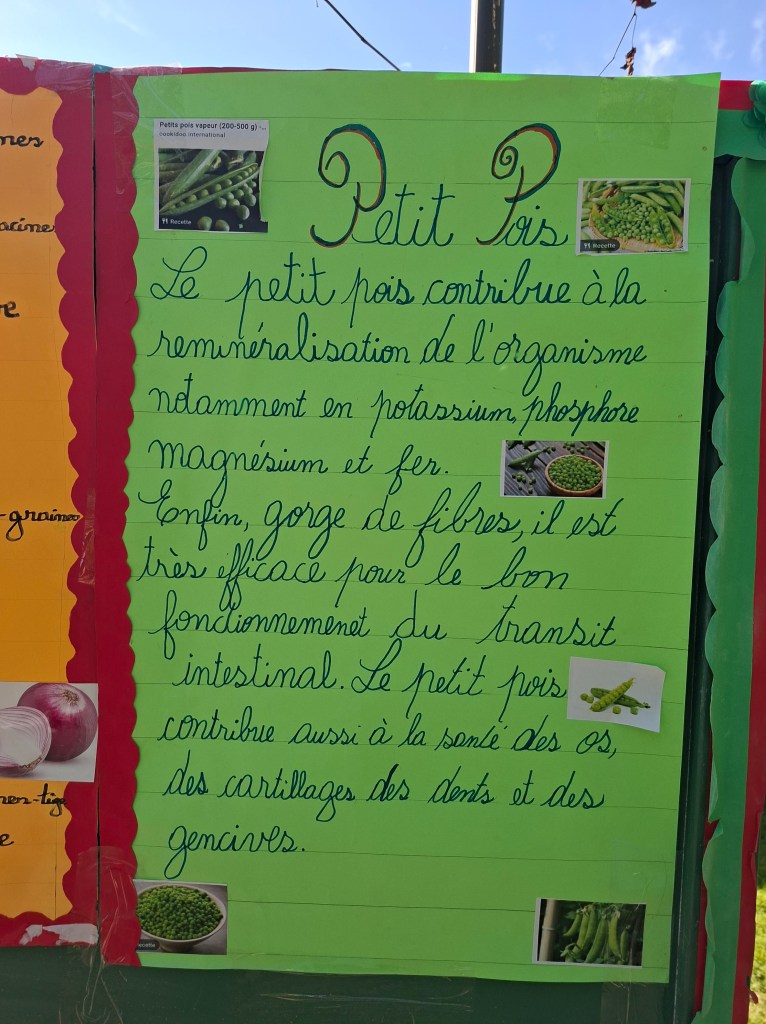 nes
acine
re
-graines
nes-tig
e
Petits pois vapeur (200-500 g) -...
cookidoo international
Recette
Petit Pois
Recette
Le petit pois contribue à la
reminéralisation de l'organisme
notamment en potassium, phosphore
magnésium et fer.
Enfin, gorge de fibres, il est
très efficace pour le bon
fonctionnemenet du transit
intestinal. Le petit pois
contribue aussi à la santé des os,
des cartillages des dents et des
gencives.
Recette